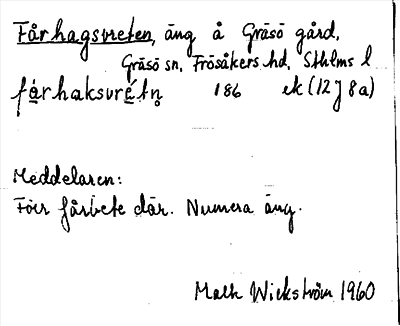 Fårhagsvreten, äng å Gräsö gård,
Gräsö sn, Frösåkers hd, Sthlms l
fárhaksvrétn̥ 186 ek (12J8a)
Meddelaren:
Förr fårbete där. Numera äng.
Math Wickström 1960